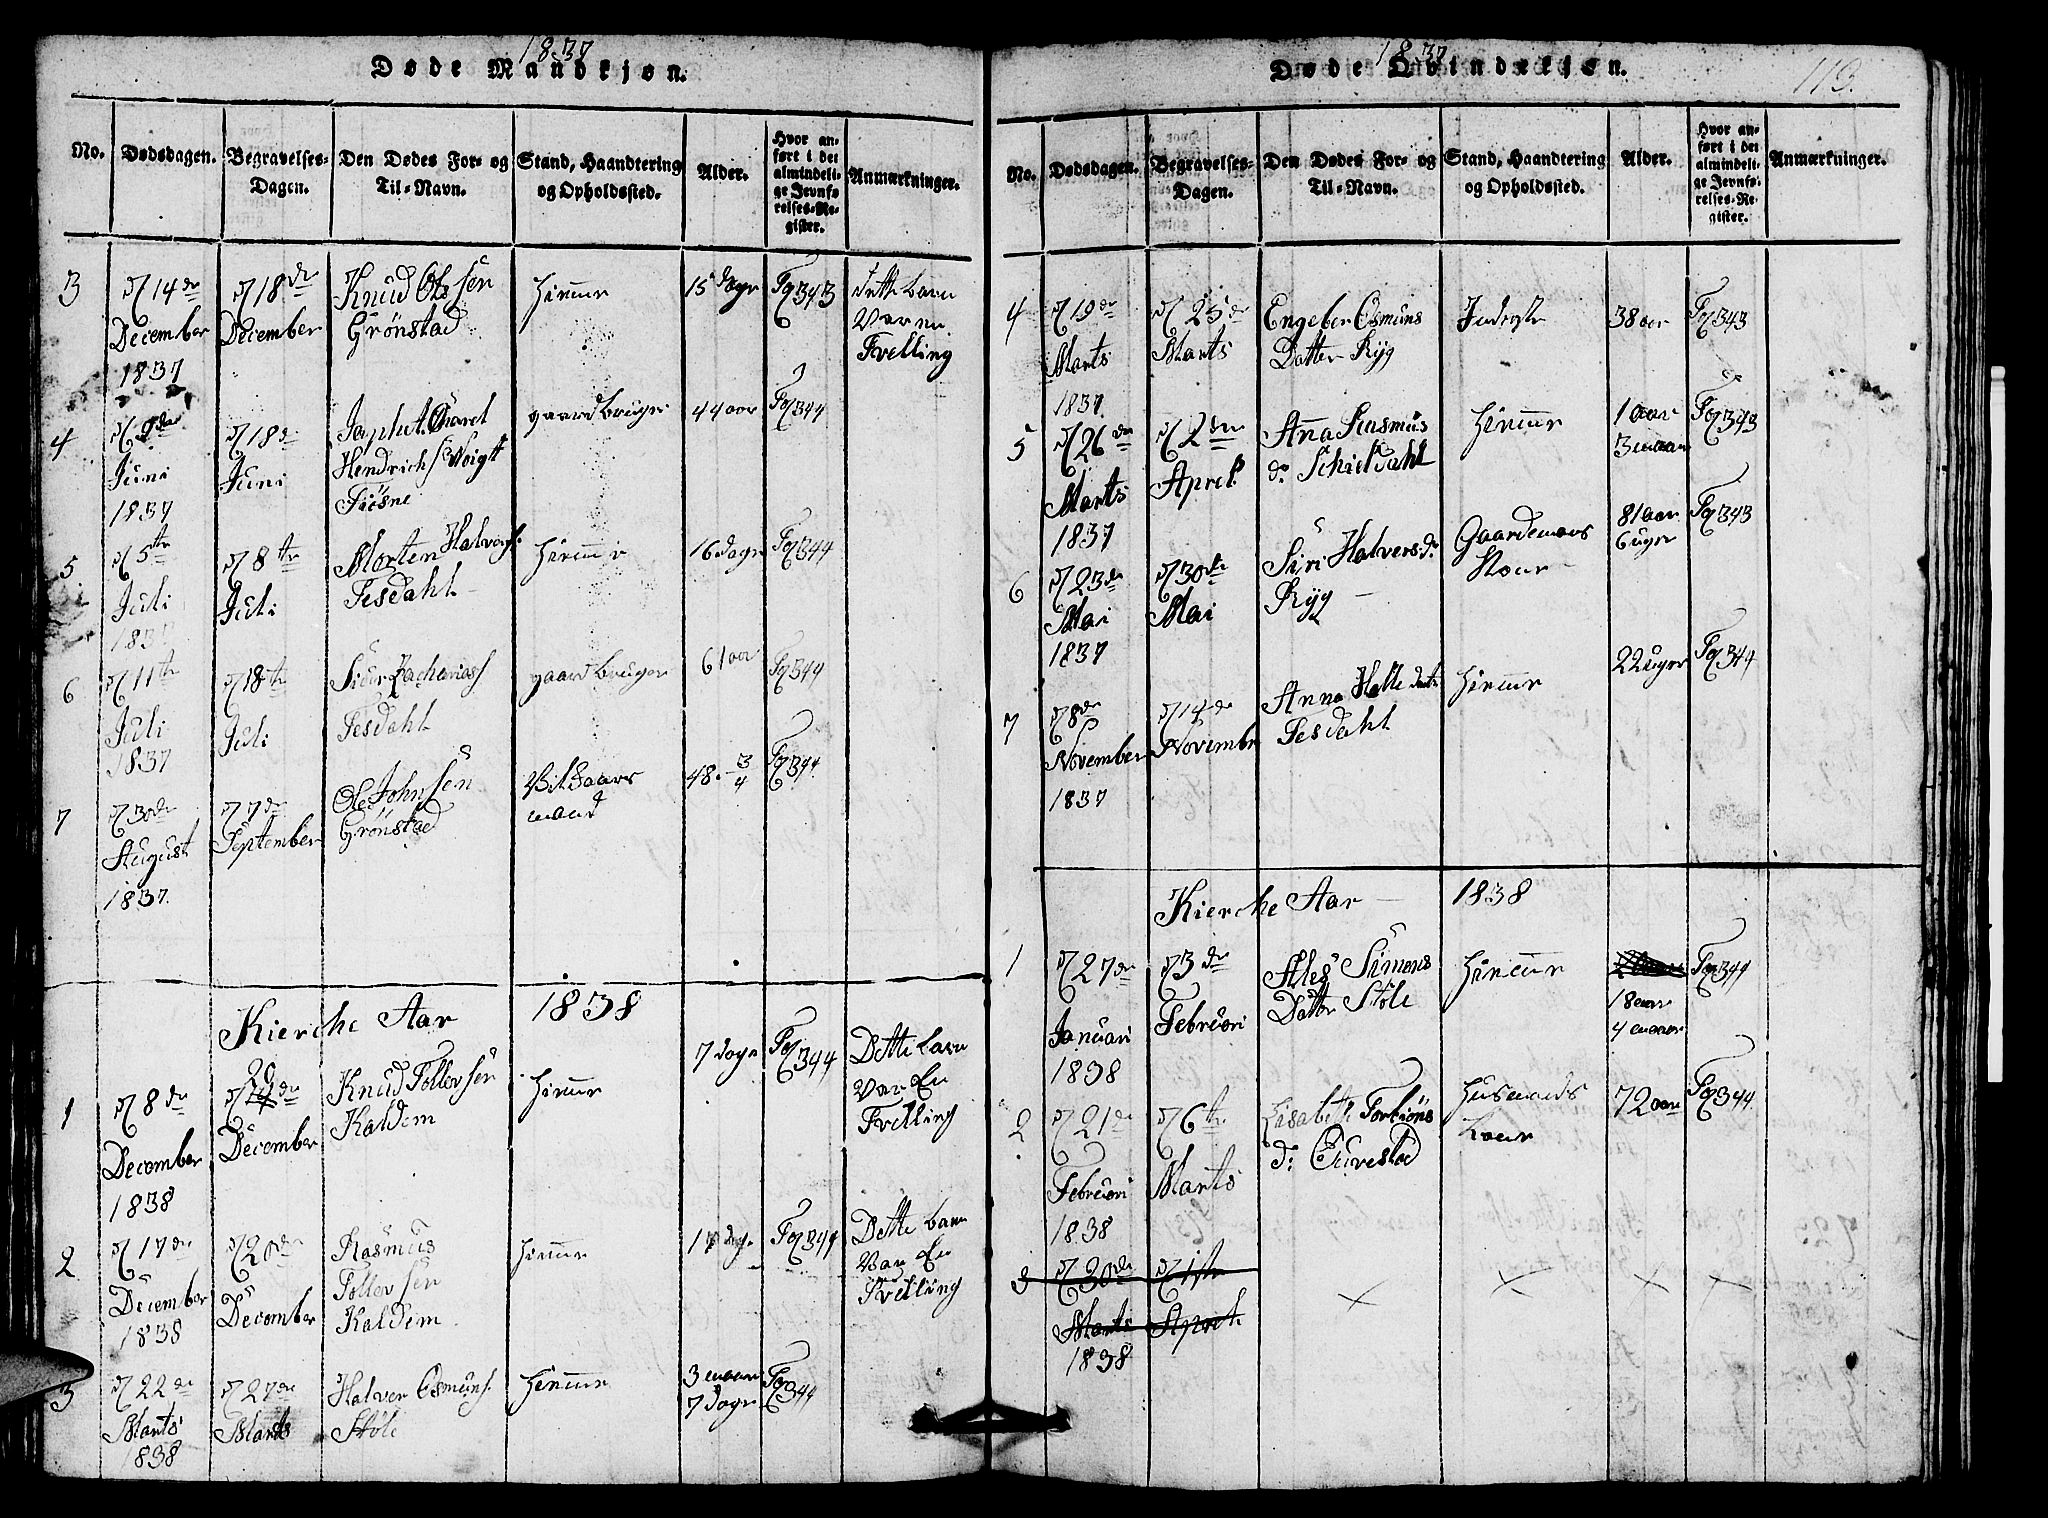 1837
Døde Mandkjøn.
No.
Dødsdagen.
Begravelses-
Dagen.
Den Dødes For- og
Til-Navn.
Stand, Haandtering
og Opholdssted.
Alder.
Hvor an-
ført i det
almindeli-
ge Jevnfø-
relses-Re-
gister.
Anmærkninger.
3
14de
December
1837
18de
December
Knud Olssen
Grönstad
15 dage
Fol 343
dette barn
Var en
Tvelling
4
9de
Juni
1837
18de
Juni
Hendrichs Voigt
gaardbruger
44 aar
Fol 344
5
5te
Juli
1837
8te
Juli
Morten Halvors
Tesdahl
16 dage
Fol 344
6
11te
Juli
1837
18te
Juli
Zacharias
Tesdahl
gaardbruger
61 aar
Fol 344
7
30de
August
1837.
7de
September
Ole Johnsen
Grönstad
mand
48. 3/4
Fol 344.
Kierche Aar 1838
1
8de
December
1838
20de
December
Knud Tollevsen
Kaldem
7 dage
Fol 344
Dette barn
Var En
Tvelling
2
17de
December
1838
20de
December
Rasmus
Tollevsen
Kaldem.
Fol 344
Dette barn
Var En
Tvelling
3
22de
Marts
1838
27de
Marts
Halver Osmuns.
Stöle
3 maan
7 dage
Fol 344
1837
Døde Qvindekjøn.
113.
No.
Dødsdagen.
Begravelses-
Dagen.
Den Dødes For- og
Til-Navn.
Stand, Haandtering
og Opholdssted.
Alder.
Hvor an-
ført i det
almindeli-
ge Jevnfø-
relses-Re-
gister.
Anmærkninger.
4
19de
Marts
1837
25de
Marts
Engeber Osmuns
Datter Ryg
38 aar
Fol 343
5
26de
Marts
1837
2den
April
Anna Rasmus
d: Schieldahl
1 aar
3 maan
Fol 343
6
23de
Mai
1837
30de
Mai
Siri Halvers d:
Ryg
Gaardemans
Kone
81 aar
6 uger
Fol 343
7
8de
November
1837
14de
November
Anna Helle datr
Tesdahl
22 uger
Fol 344
Kierche Aar 1838
1
27de
Januari
1838
3de
Februari
Simons
Datter Stöle
18 aar
4 maan
Fol 344
2
21de
Februari
1838
6te
Marts
Lisabeth Torbiöns
d:
Husmands
72 aar
Fol 344.
3
30de
Marts
1838
1ste
April